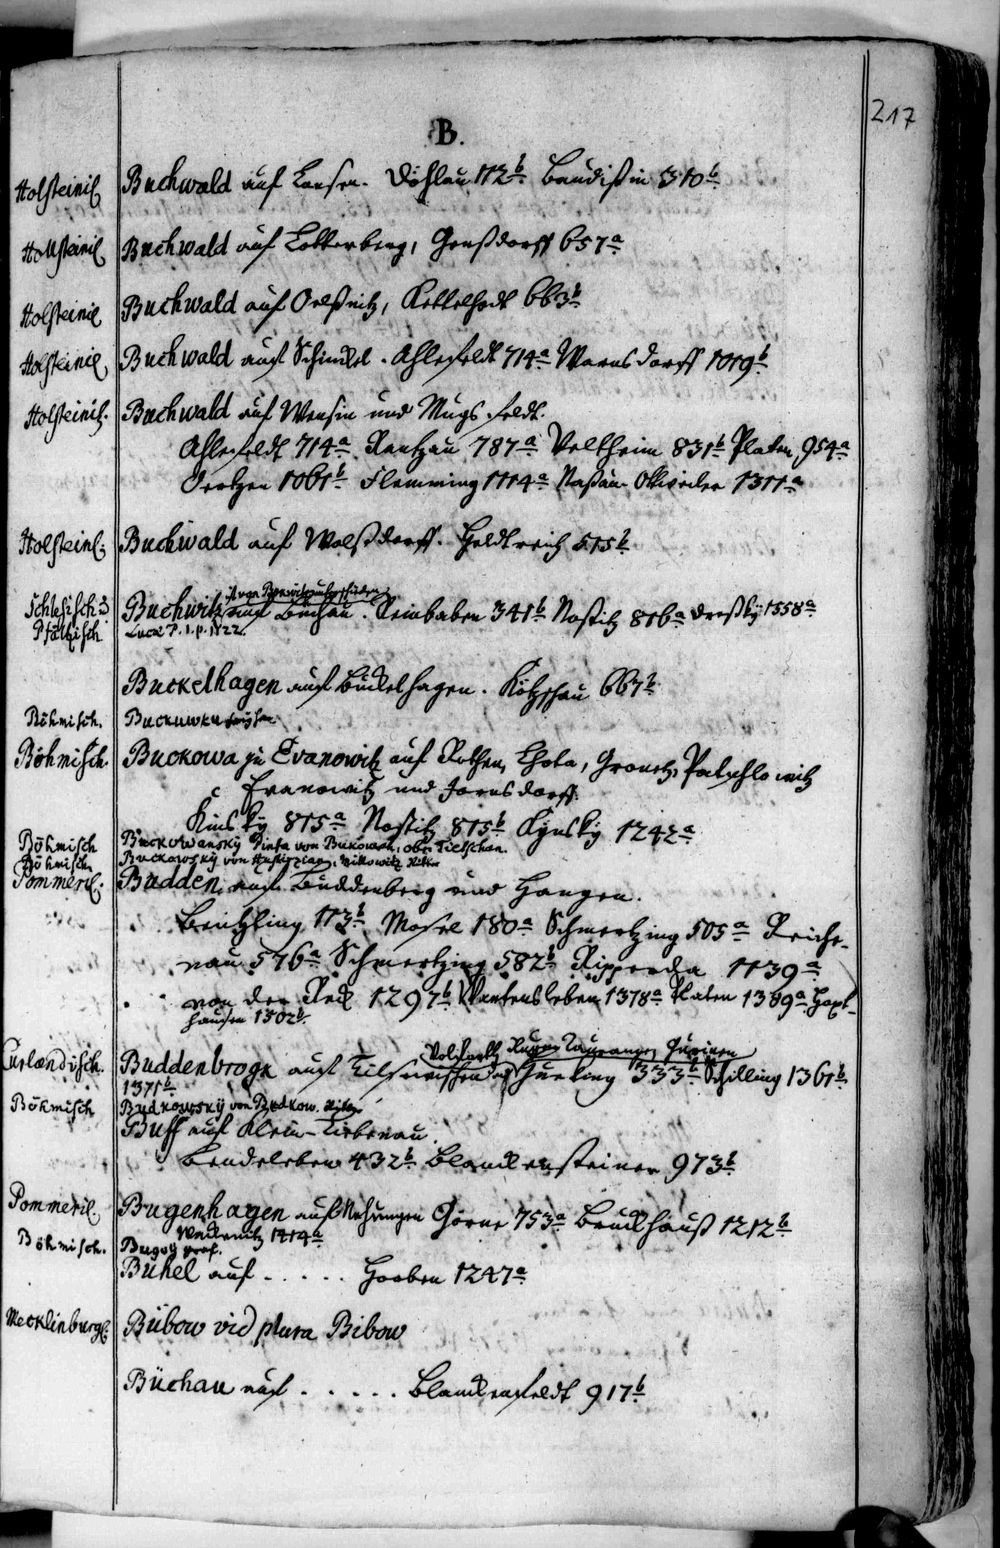 217
B.
Holsteinisch Buchwald auf Lensen. Döhlau 172b. Baudißin 310b.
Holsteinisch Buchwald auf Lotterberg, Großdorff 657a
Holsteinisch Buchwald auf Oelßnitz, Kettelhodt 663b
Holsteinisch Buchwald auf Schinckel. Ahlefeldt 714a Warnsdorff 1019b
Holsteinisch. Buchwald auf Wensin und Mugsfeldt.
Ahlefeldt 714a. Rantzau 787a Veltheim 831b Platen 954a
Oertzen 1061b Flemming 1114a Naßau Ottweiler 1311a
Holsteinisch. Buchwald auf Wolßdorff. Heldtreich 515b
Schlesisch & Buchwitz auf Buchau. Reinbaben 341b Nostitz 816a Dreßky 1358a
Pfältzisch Lucæ P. 1. p. 1722.
Buckelhagen auf Bückelhagen. Kötzschau 667b
Böhmisch. Buckuwka
Böhmisch. Buckowa zu Evanowitz auf Rothen, Lhota, Gronetz, Patzhlowitz
Evanowitz und Jornsdorff.
Kinsky 815a Nostitz 815b Kynsky 1242a
Böhmisch Buckowansky Pinta von Bukowan, ober Tietschan.
Böhmisch Buckowsky von Hustirzian, Mikowitz Ritter
Pommerisch. Budden, auf Buddenberg und Hangen.
173b. Mosel 180a Schmertzing 505a Reiche-
nau 576a Schmertzing 582b Ripperda 1139a
von der Reck 1297b Wartensleben 1378a Platen 1389a Haxt-
hausen 1502b.
Curlændisch. Buddenbrogk auf 333b Schilling 1361b
1371b
Böhmisch Budkowsky von Budkow. Ritter
Buff auf Klein-Liebenau.
Bendeleben 432b Blanckensteiner 973b
Pommerisch. Bugenhagen auf Nehringen Görne 753a Bruckhauß 1212b
Wackenitz 1414a
Böhmisch. Buguy Graf.
Bühel auf ..... Haaben 1247a
Mecklinburgisch Bübow vid plura Bibow
Büchau auf ..... Blanckenfeldt 917b